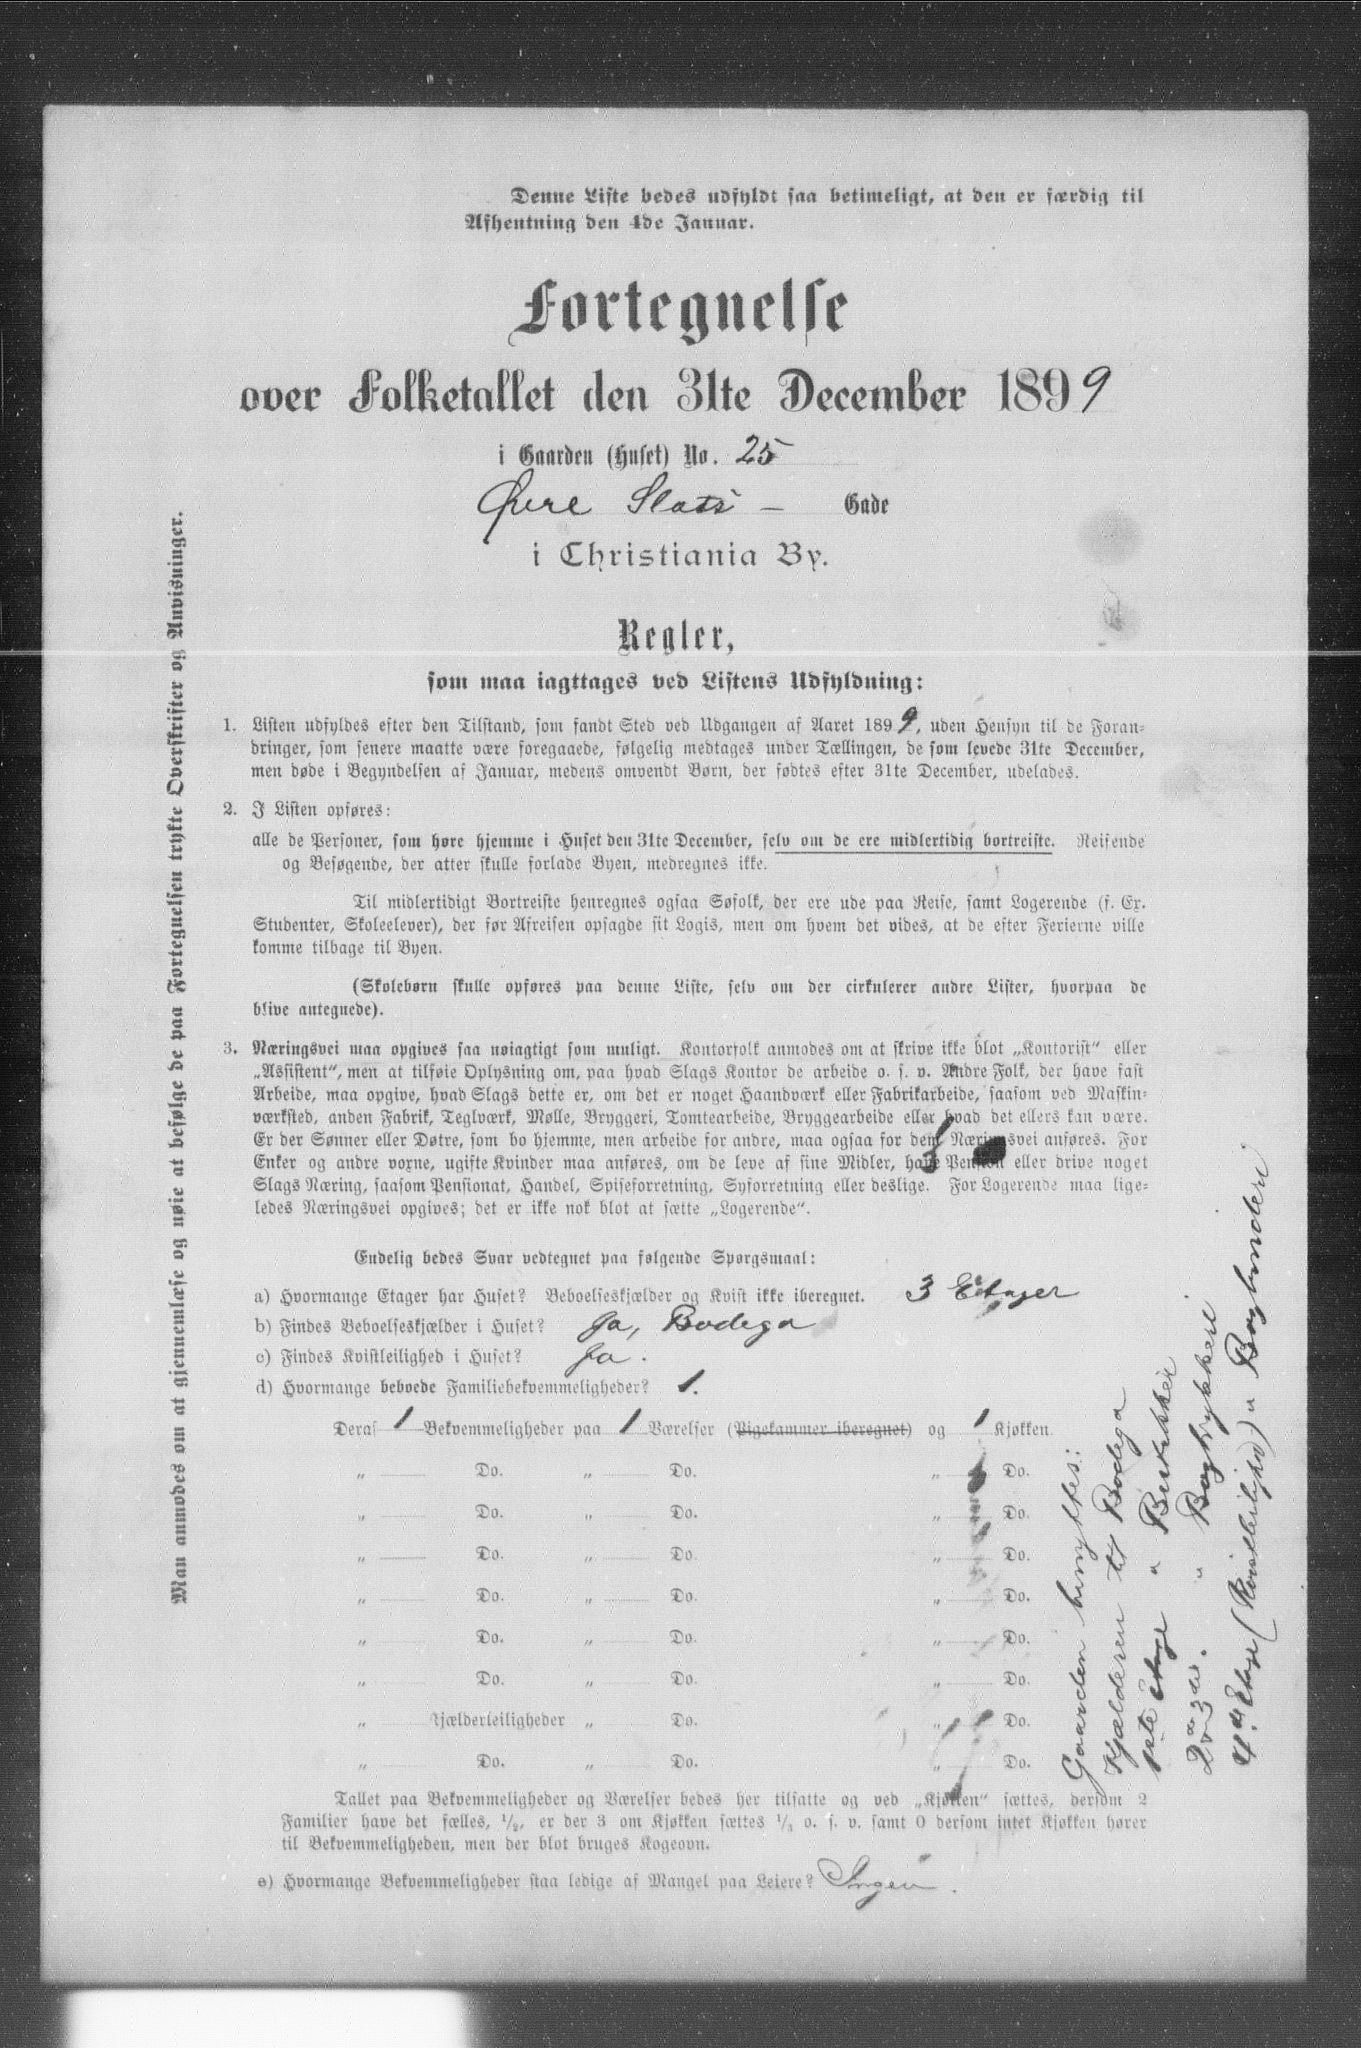 Denne Liste bedes udfyldt saa betimeligt, at den er færdig til
Afhentning den 4de Januar.
Fortegnelse
over Folketallet den 31te December 1899
i Gaarden (Huset) No. 25
Øvre Slots - Gade
i Christiania By.
Regler,
som maa iagttages ved Listens Udfyldning:
1. Listen udfyldes efter den Tilstand, som fandt Sted ved Udgangen af Aaret 1899, uden Hensyn til de Foran-
dringer, som senere maatte være foregaaede, følgelig medtages under Tællingen, de som levede 31te December,
men døde i Begyndelsen af Januar, medens omvendt Børn, der fødtes efter 31te December, udelades.
2. I Listen opføres:
alle de Personer, som høre hjemme i Huset den 31te December, selv om de ere midlertidig bortreiste. Reisende
og Besøgende, der atter skulle forlade Byen, medregnes ikke.
Til midlertidigt Bortreiste henregnes ogsaa Søfolk, der ere ude paa Reise, samt Logerende (f. Ex.
Studenter, Skoleelever), der før Afreisen opsagde sit Logis, men om hvem det vides, at de efter Ferierne ville
komme tilbage til Byen.
(Skolebørn skulle opføres paa denne Liste, selv om der cirkulerer andre Lister, hvorpaa de
blive antegnede).
3. Næringsvei maa opgives saa nøiagtigt som muligt. Kontorfolk anmodes om at skrive ikke blot „Kontorist“ eller
„Assistent“, men at tilføie Oplysning om, paa hvad Slags Kontor de arbeide o. s. v. Andre Folk, der have fast
Arbeide, maa opgive, hvad Slags dette er, om det er noget Haandværk eller Fabrikarbeide, saasom ved Maskin-
værksted, anden Fabrik, Teglværk, Mølle, Bryggeri, Tomtearbeide, Bryggearbeide eller hvad det ellers kan være.
Er der Sønner eller Døtre, som bo hjemme, men arbeide for andre, maa ogsaa for dem Næringsvei anføres. For
Enker og andre voxne, ugifte Kvinder maa anføres, om de leve af sine Midler, have Pension eller drive noget
Slags Næring, saasom Pensionat, Handel, Spiseforretning, Syforretning eller deslige. For Logerende maa lige-
ledes Næringsvei opgives; det er ikke nok blot at sætte „Logerende“.
Endelig bedes Svar vedtegnet paa følgende Spørgsmaal:
a) Hvormange Etager har Huset? Beboelseskjælder og Kvist ikke iberegnet. 3 Etager
b) Findes Beboelseskjælder i Huset? Ja, Bodega
c) Findes Kvistleilighed i Huset? Ja.
d) Hvormange beboede Familiebekvemmeligheder? 1.
Deraf 1 Bekvemmeligheder paa 1 Værelser (Pigekammer iberegnet) og 1 Kjøkken.
„ Do. „ Do. „ Do.
„ Do. „ Do. „ Do.
„ Do. „ Do. „ Do.
„ Do. „ Do. „ Do.
„ Do. „ Do. „ Do.
„ Do. „ Do. „ Do.
„ Kjælderleiligheder „ Do. „ Do.
„ Do. „ Do. „ Do.
Tallet paa Bekvemmeligheder og Værelser bedes her tilsatte og ved „Kjøkken“ sættes, dersom 2
Familier have det fælles, 1/2, er der 3 om Kjøkken sættes 1/3 o. s. v. samt 0 dersom intet Kjøkken hører
til Bekvemmeligheden, men der blot bruges Kogeovn.
e) Hvormange Bekvemmeligheder staa ledige af Mangel paa Leiere? Ingen.
Man anmodes om at gjennemlæse og nøie at befølge de paa Fortegnelsen trykte Overskrifter og Anvisninger.
Gaarden benyttes:
Kjælderen til Bodega
1ste Etage „ Butikker
2den 3die „ Bogtrykkeri
4de Etage (Kvistleilighed) „ Bogbinderi